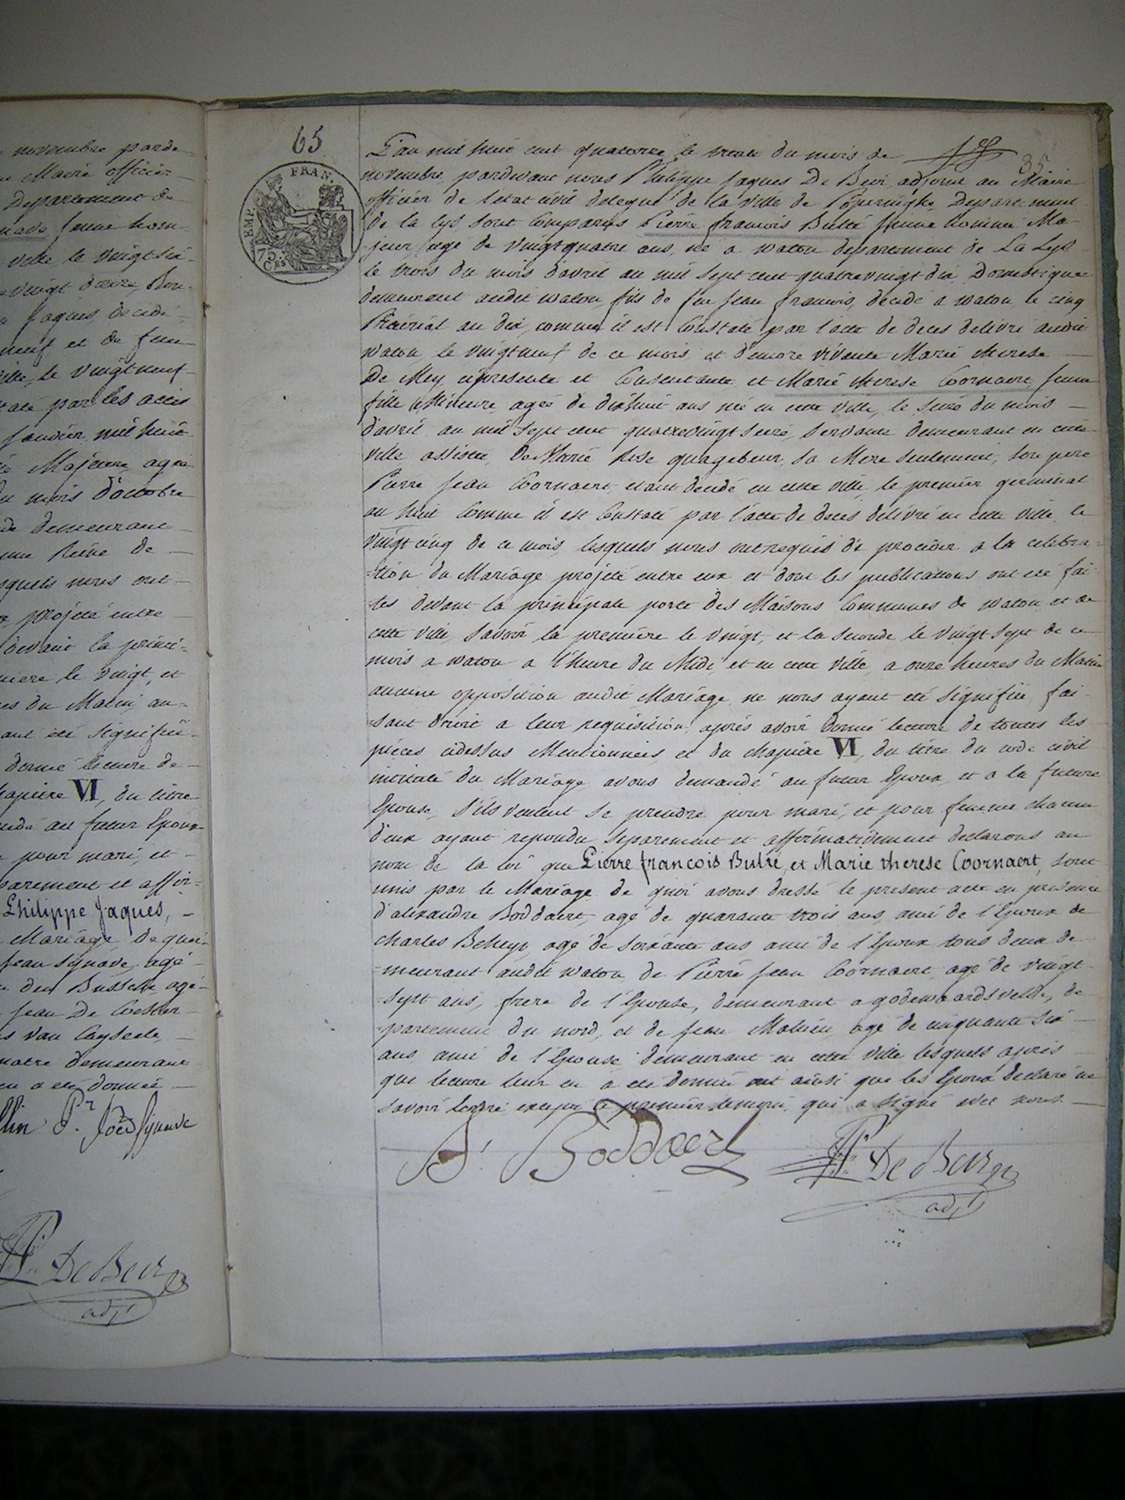 novembre parde-
Maire officier
Departement de
jeune hom-
ville le vingt six
vingt douze, Dom-
Jaques decidé
neuf et de feue
ville, le vingt neuf
taté par les actes
Janvier mil huit
Majeure agée
du mois d'octobre
demeurant
Reine de
lesquels nous ont
projeté entre
devant la princi-
miere le vingt, et
res du Matin au-
ant été signifiée
donné lecture de
chapitre VI, du titre
mandé au futur Epoux
pour mari, et
parement et affir-
Philippe Jaques,
Mariage De quoi
Jean Synave, agé
den Bussche agé
Jean De
Van
demeurant
en a été donnée
P.r
PL De Beir
adjt
65
EMP FRAN.
75 Ces
L'an mil huit cent quatorze, le trente du mois de
novembre pardevant nous Philippe Jaques De Beir adjoint au Maire
officier de l'etat civil delegué de la ville de Poperinghe, Departement
de la Lys, sont comparus Pierre francois Bulté jeune homme Ma-
jeur, agé de vingt quatre ans, né a watou departement de La Lys
le trois du mois d'avril an mil sept cent quatre vingt dix Domestique
demeurant audit watou, fils de feu Jean francois, décidé a watou le cinq
Prairial an dix, comme il est Constaté par l'acte de deces délivré audit
watou le vingt neuf de ce mois et d'encore vivente Marie therese
De Mey cipresente et Consentante et Marie therese Coornaert, jeune
fille Mineure, agée de dixhuit ans née en cette ville, le seize du mois
d'avril an mil sept cent quatrevingt seize, servante demeurant en cette
ville assistée De Marie Rose quagebeur, sa Mere seulement, son pere
Pierre Jean Coornaert etant décidé en cette ville le premier germinal
an huit Comme il est Constaté par l'acte de decés délivré en cette ville le
vingt cinq de ce mois, lesquels nous ont requis de procéder a la celebra-
-tion du Mariage projeté entre eux et dont les publications ont été fai-
-tes devant la principale porte des Maisons Communes de watou et de
cette ville savoir la première le vingt, et la seconde le vingt sept de ce
mois a watou a l'heure du Midi et en cette ville, a onze heures du Matin
aucune opposition audit Mariage ne nous ayant été signifiée fai-
-sant droit a leur requisition, après avoir donné lecture de toutes les
pièces cidessus Mentionnées et du chapitre VI, du titre du code civil
intitulé du Mariage avons demandé au futur Epoux et a la future
Epouse, s'ils veulent se prendre pour mari, et pour femme chacun
d'eux ayant repondu separement et affirmativement declarons au
nom de la loi que Pierre francois Bulté, et Marie therese Coornaert, sont
unis par le Mariage de quoi avons dressé le present acte en presence
d'alexandre Boddaert, agé de quarante trois ans, ami de l'Epoux de
charles agé de soixante ans ami de l'Epoux tous deux de-
-meurant audit watou de Pierre Jean Coornaert agé de vingt
-sept ans, frere de l'Epouse, demeurant a godewaardsvelde, de-
-partement du nord, et de Jean Mahieu agé de cinquante six
ans ami de l'Epouse demeurant en cette ville lesquels après
que lecture leur en a été donnée ont ainsi que les Epoux declaré ne
savoir écrire excepté le premier temoin, qui a signé avec nous.
A. Boddaert
PL De Beir
adjt